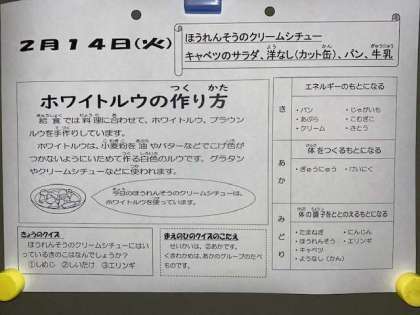 2月14日(火)
ほうれんそうのクリームシチュー
キャベツのサラダ、洋なし(カット缶)、パン、牛乳
ホワイトルウの作り方
給食では料理に合わせて、ホワイトルウ、ブラウン
ルウを手作りしています。
ホワイトルウは、小麦粉を油やバターなどでこげ色が
つかないようにいためて作る白色のルウです。グラタン
やクリームシチューなどに使われます。
今日のほうれんそうのクリームシチューは、
ホワイトルウを使っています。
きょうのクイズ
ほうれんそうのクリームシチューにはい
っているきのこはなんでしょうか?
①しめじ ②しいたけ ③エリンギ
まえのひのクイズのこたえ
せいかいは、②あかです。
くきわかめは、あかのグループのたべ
ものです。
き
エネルギーのもとになる
・パン ・じゃがいも
・あぶら ・こむぎこ
・クリーム ・さとう
あか
体をつくるもとになる
・ぎゅうにゅう ・けいにく
みどり
体の調子をととのえるもとになる
・たまねぎ ・にんじん
・ほうれんそう ・エリンギ
・キャベツ
・ようなし(かん)